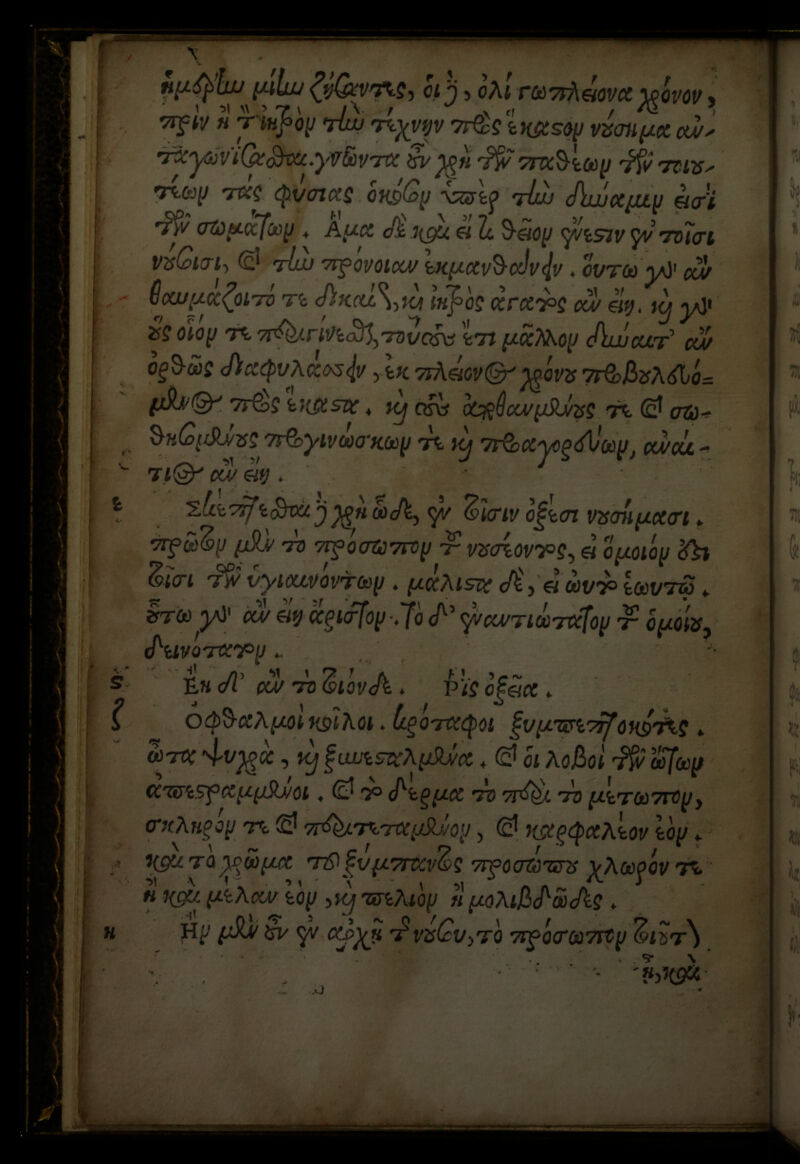 ἡμέρην μίην ζήσαντες, οἱ δὲ, ὀλίγῳ πλείονα χρόνον,
πρὶν ἢ τὸν ἰητρὸν τὴν τέχνην πρὸς ἕκαστον νούσημα ἀν-
ταγωνίσασθαι. γνῶντα οὖν χρὴ τῶν παθέων τῶν τοιου-
τέων τὰς φύσιας ὁκόσον ὑπὲρ τὴν δύναμιν εἰσὶ
τῶν σωμάτων. Ἅμα δὲ καὶ εἴ τι θεῖον ἔνεστιν ἐν τοῖσι
νούσοισι, καὶ τὴν πρόνοιαν ἐκμανθάνειν. οὕτω γὰρ ἂν
θαυμάζοιτό τε δικαίως, καὶ ἰητρὸς ἀγαθὸς ἂν εἴη. καὶ γὰρ
οὓς οἷόν τε περιγίνεσθαι, τούσδε ἔτι μᾶλλον δύναιτ' ἂν
ὀρθῶς διαφυλάσσειν, ἐκ πλείονος χρόνου προβουλευό-
μενος πρὸς ἕκαστα, καὶ τοὺς ἀποθανουμένους τε καὶ σω-
θησομένους προγινώσκων τε καὶ προαγορεύων, ἀναί-
τιος ἂν εἴη.
ε Σκέπτεσθαι δὲ χρὴ ὧδε, ἐν τοῖσιν ὀξέσι νουσήμασι.
πρῶτον μὲν τὸ πρόσωπον τοῦ νοσέοντος, εἰ ὅμοιόν ἐστι
τοῖσι τῶν ὑγιαινόντων. μάλιστα δὲ, εἰ ὡυτὸ ἑωυτῷ.
οὕτω γὰρ ἂν εἴη ἄριστον. Τὸ δ' ἐναντιώτατον τοῦ ὁμοίου,
δεινότατον.
ς Εἴη δ' ἂν τὸ τοιόνδε. ῥὶς ὀξεῖα.
ζ ὀφθαλμοὶ κοῖλοι. κρόταφοι ξυμπεπτωκότες.
ὦτα ψυχρὰ, καὶ ξυνεσταλμένα, καὶ οἱ λοβοὶ τῶν ὤτων
ἀπεστραμμένοι, καὶ τὸ δέρμα τὸ περὶ τὸ μέτωπον,
σκληρόν τε καὶ περιτεταμένον, καὶ καρφαλέον ἐὸν.
καὶ τὸ χρῶμα τοῦ ξύμπαντος προσώπου χλωρόν τε
ἢ καὶ μέλαν ἐὸν, καὶ πελιὸν ἢ μολιβδῶδες.
η Ἢν μὲν οὖν ἐν ἀρχῇ τοῦ νούσου, τὸ πρόσωπον τοιοῦτον
ᾖ, καὶ